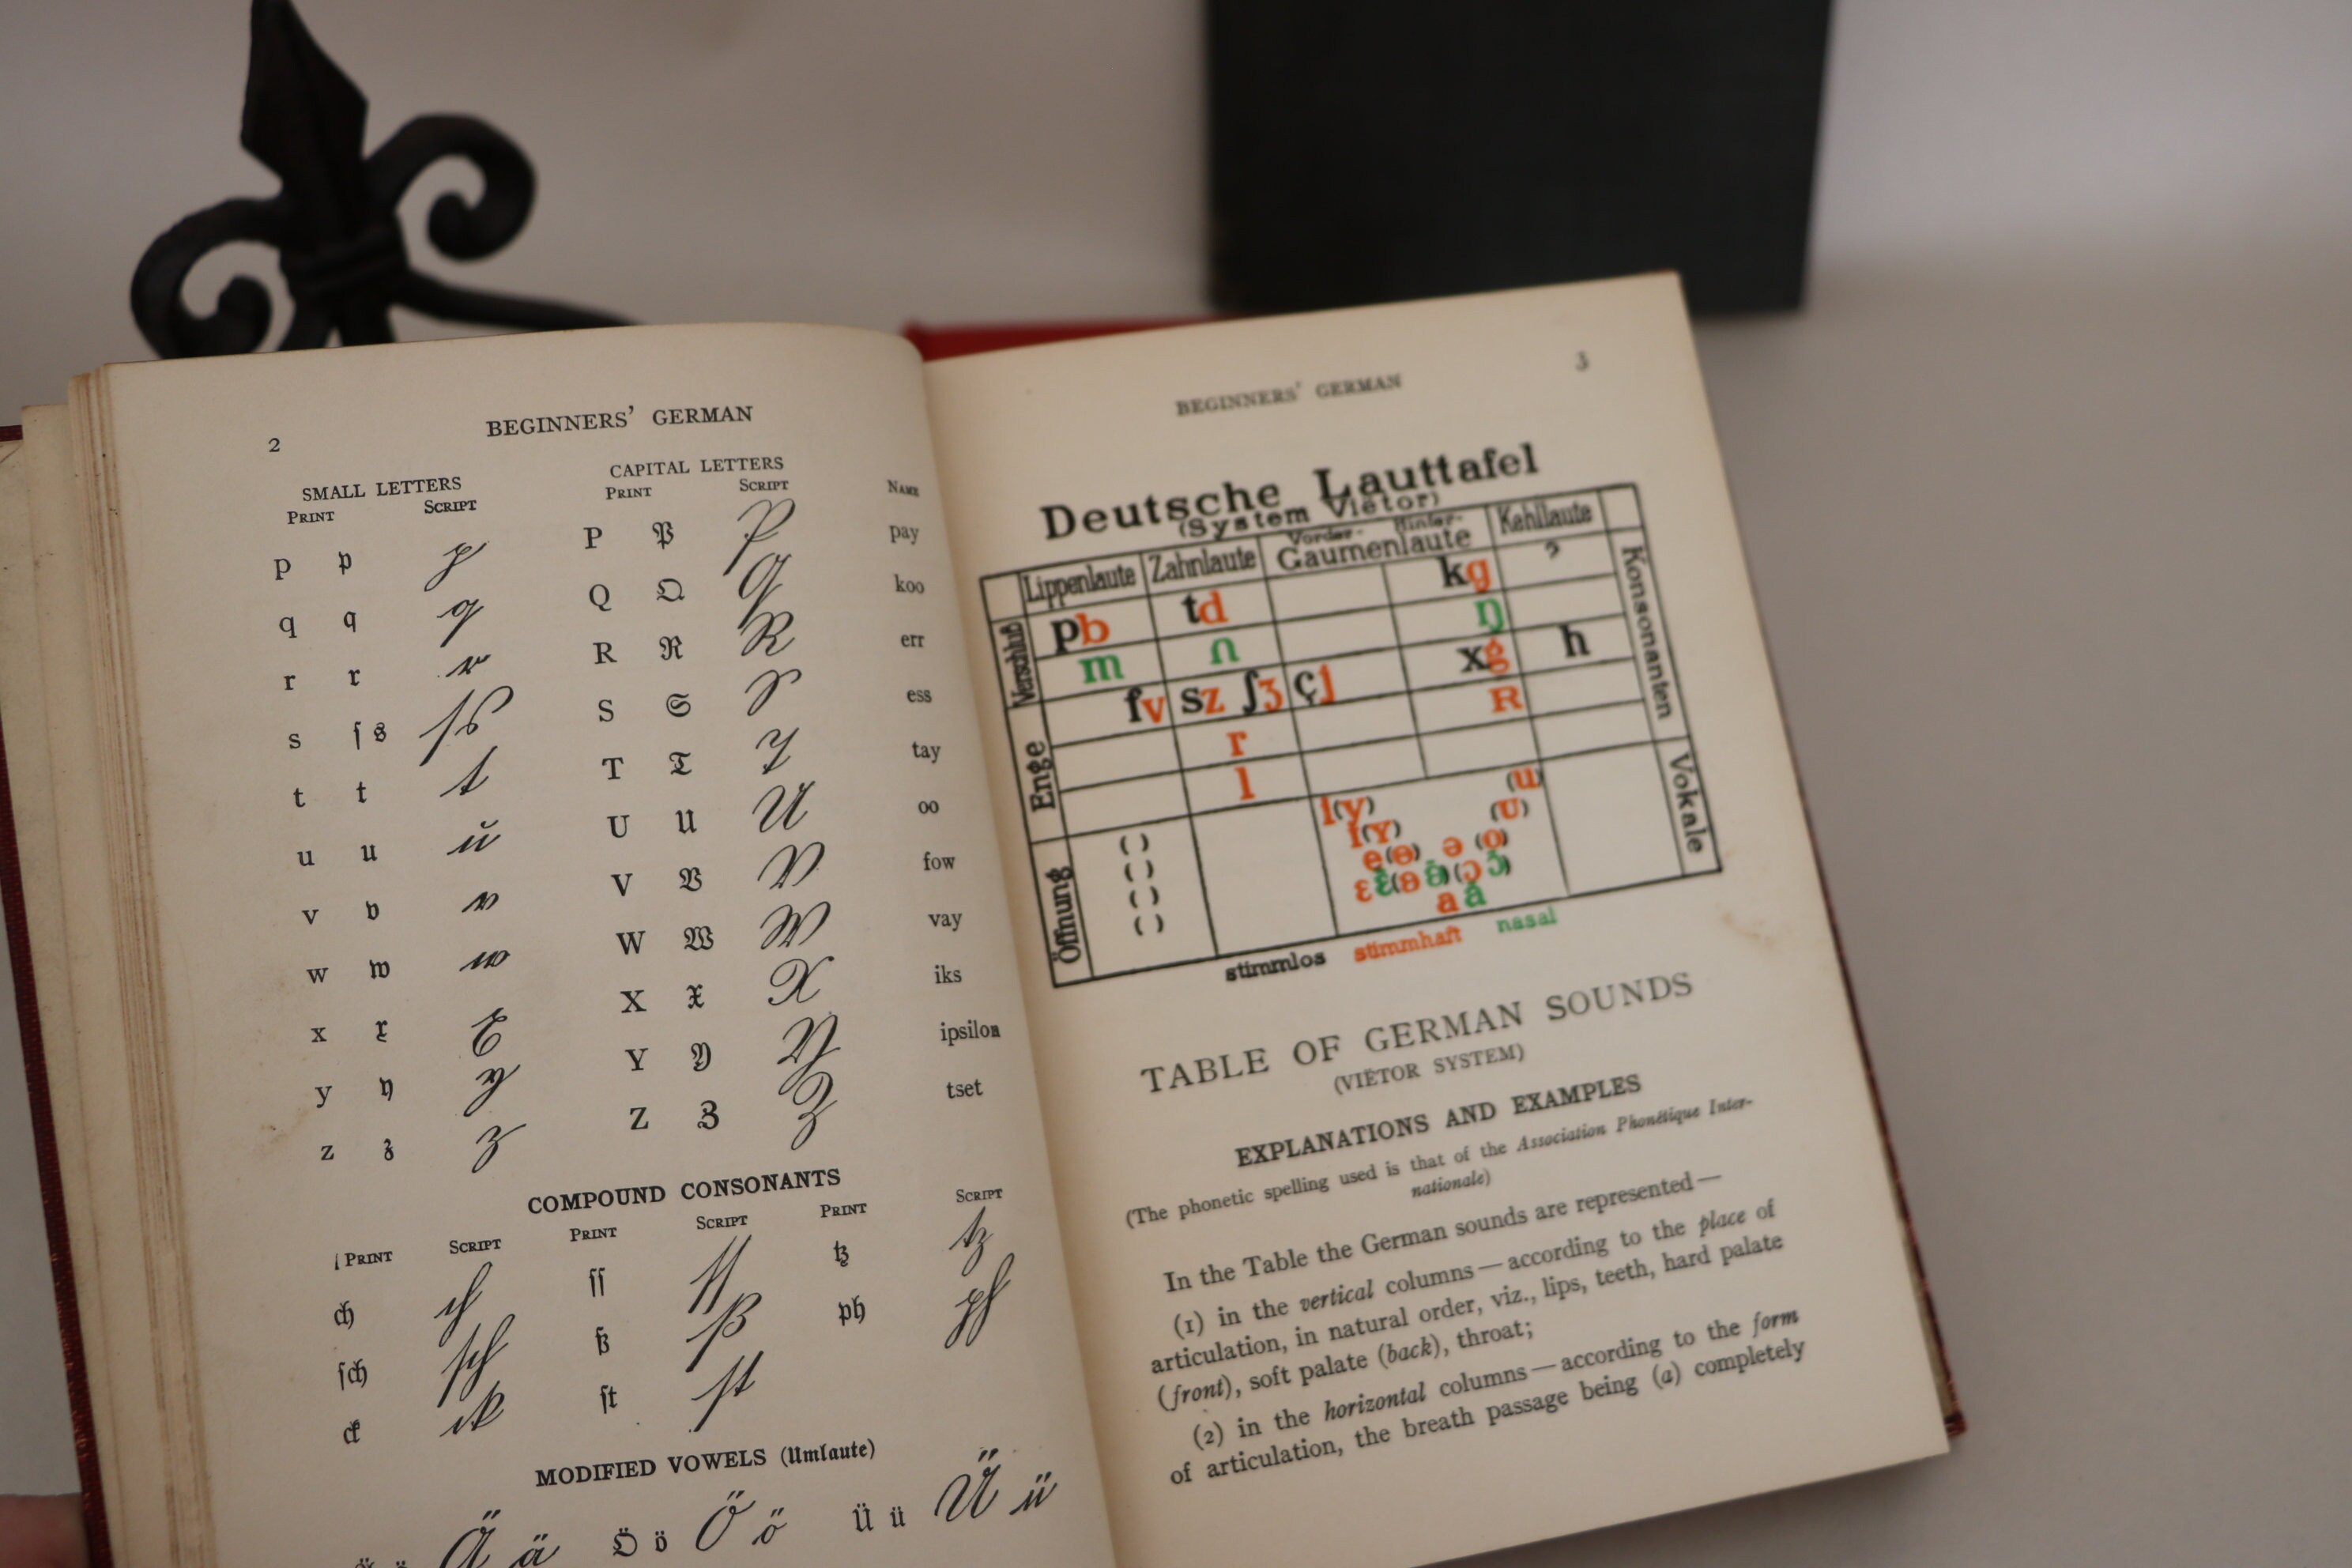 2 BEGINNERS' GERMAN
SMALL LETTERS CAPITAL LETTERS
PRINT SCRIPT PRINT SCRIPT NAME
p 𝔭 p P 𝔓 P pay
q 𝔮 q Q 𝔔 Q koo
r 𝔯 r R ℜ R err
s ſ 𝔰 ſ s S 𝔖 S ess
t 𝔱 t T 𝔗 T tay
u 𝔲 u U 𝔘 U oo
v 𝔳 v V 𝔙 V fow
w 𝔴 w W 𝔚 W vay
x 𝔵 x X 𝔛 X iks
y 𝔶 y Y 𝔜 Y ipsilon
z 𝔷 z Z ℨ Z tset
COMPOUND CONSONANTS
PRINT SCRIPT PRINT SCRIPT PRINT SCRIPT
ch ch ſſ ſſ tz tz
ſch ſch ß ß ph ph
ck ck ſt ſt
MODIFIED VOWELS (Umlaute)
Ä ä Ö ö Ö ö Ü ü Ü ü
BEGINNERS' GERMAN 3
Deutsche Lauttafel
(System Viëtor)
Lippenlaute Zahnlaute Vorder- Hinter- Gaumenlaute Kehllaute
Verschluß
pb td kg ʔ
m n ŋ
Enge
fv sz ʃʒ çj xǥ h
r R
l
Öffnung
( ) i(y) (u)
( ) ɪ(ʏ) (ʊ)
( ) e(ɵ) ə (o)
( )
a ã
Konsonanten
Vokale
stimmlos stimmhaft nasal
TABLE OF GERMAN SOUNDS
(VIËTOR SYSTEM)
EXPLANATIONS AND EXAMPLES
(The phonetic spelling used is that of the Association Phonétique Inter-
nationale)
In the Table the German sounds are represented—
(1) in the vertical columns—according to the place of
articulation, in natural order, viz., lips, teeth, hard palate
(front), soft palate (back), throat;
(2) in the horizontal columns—according to the form
of articulation, the breath passage being (a) completely